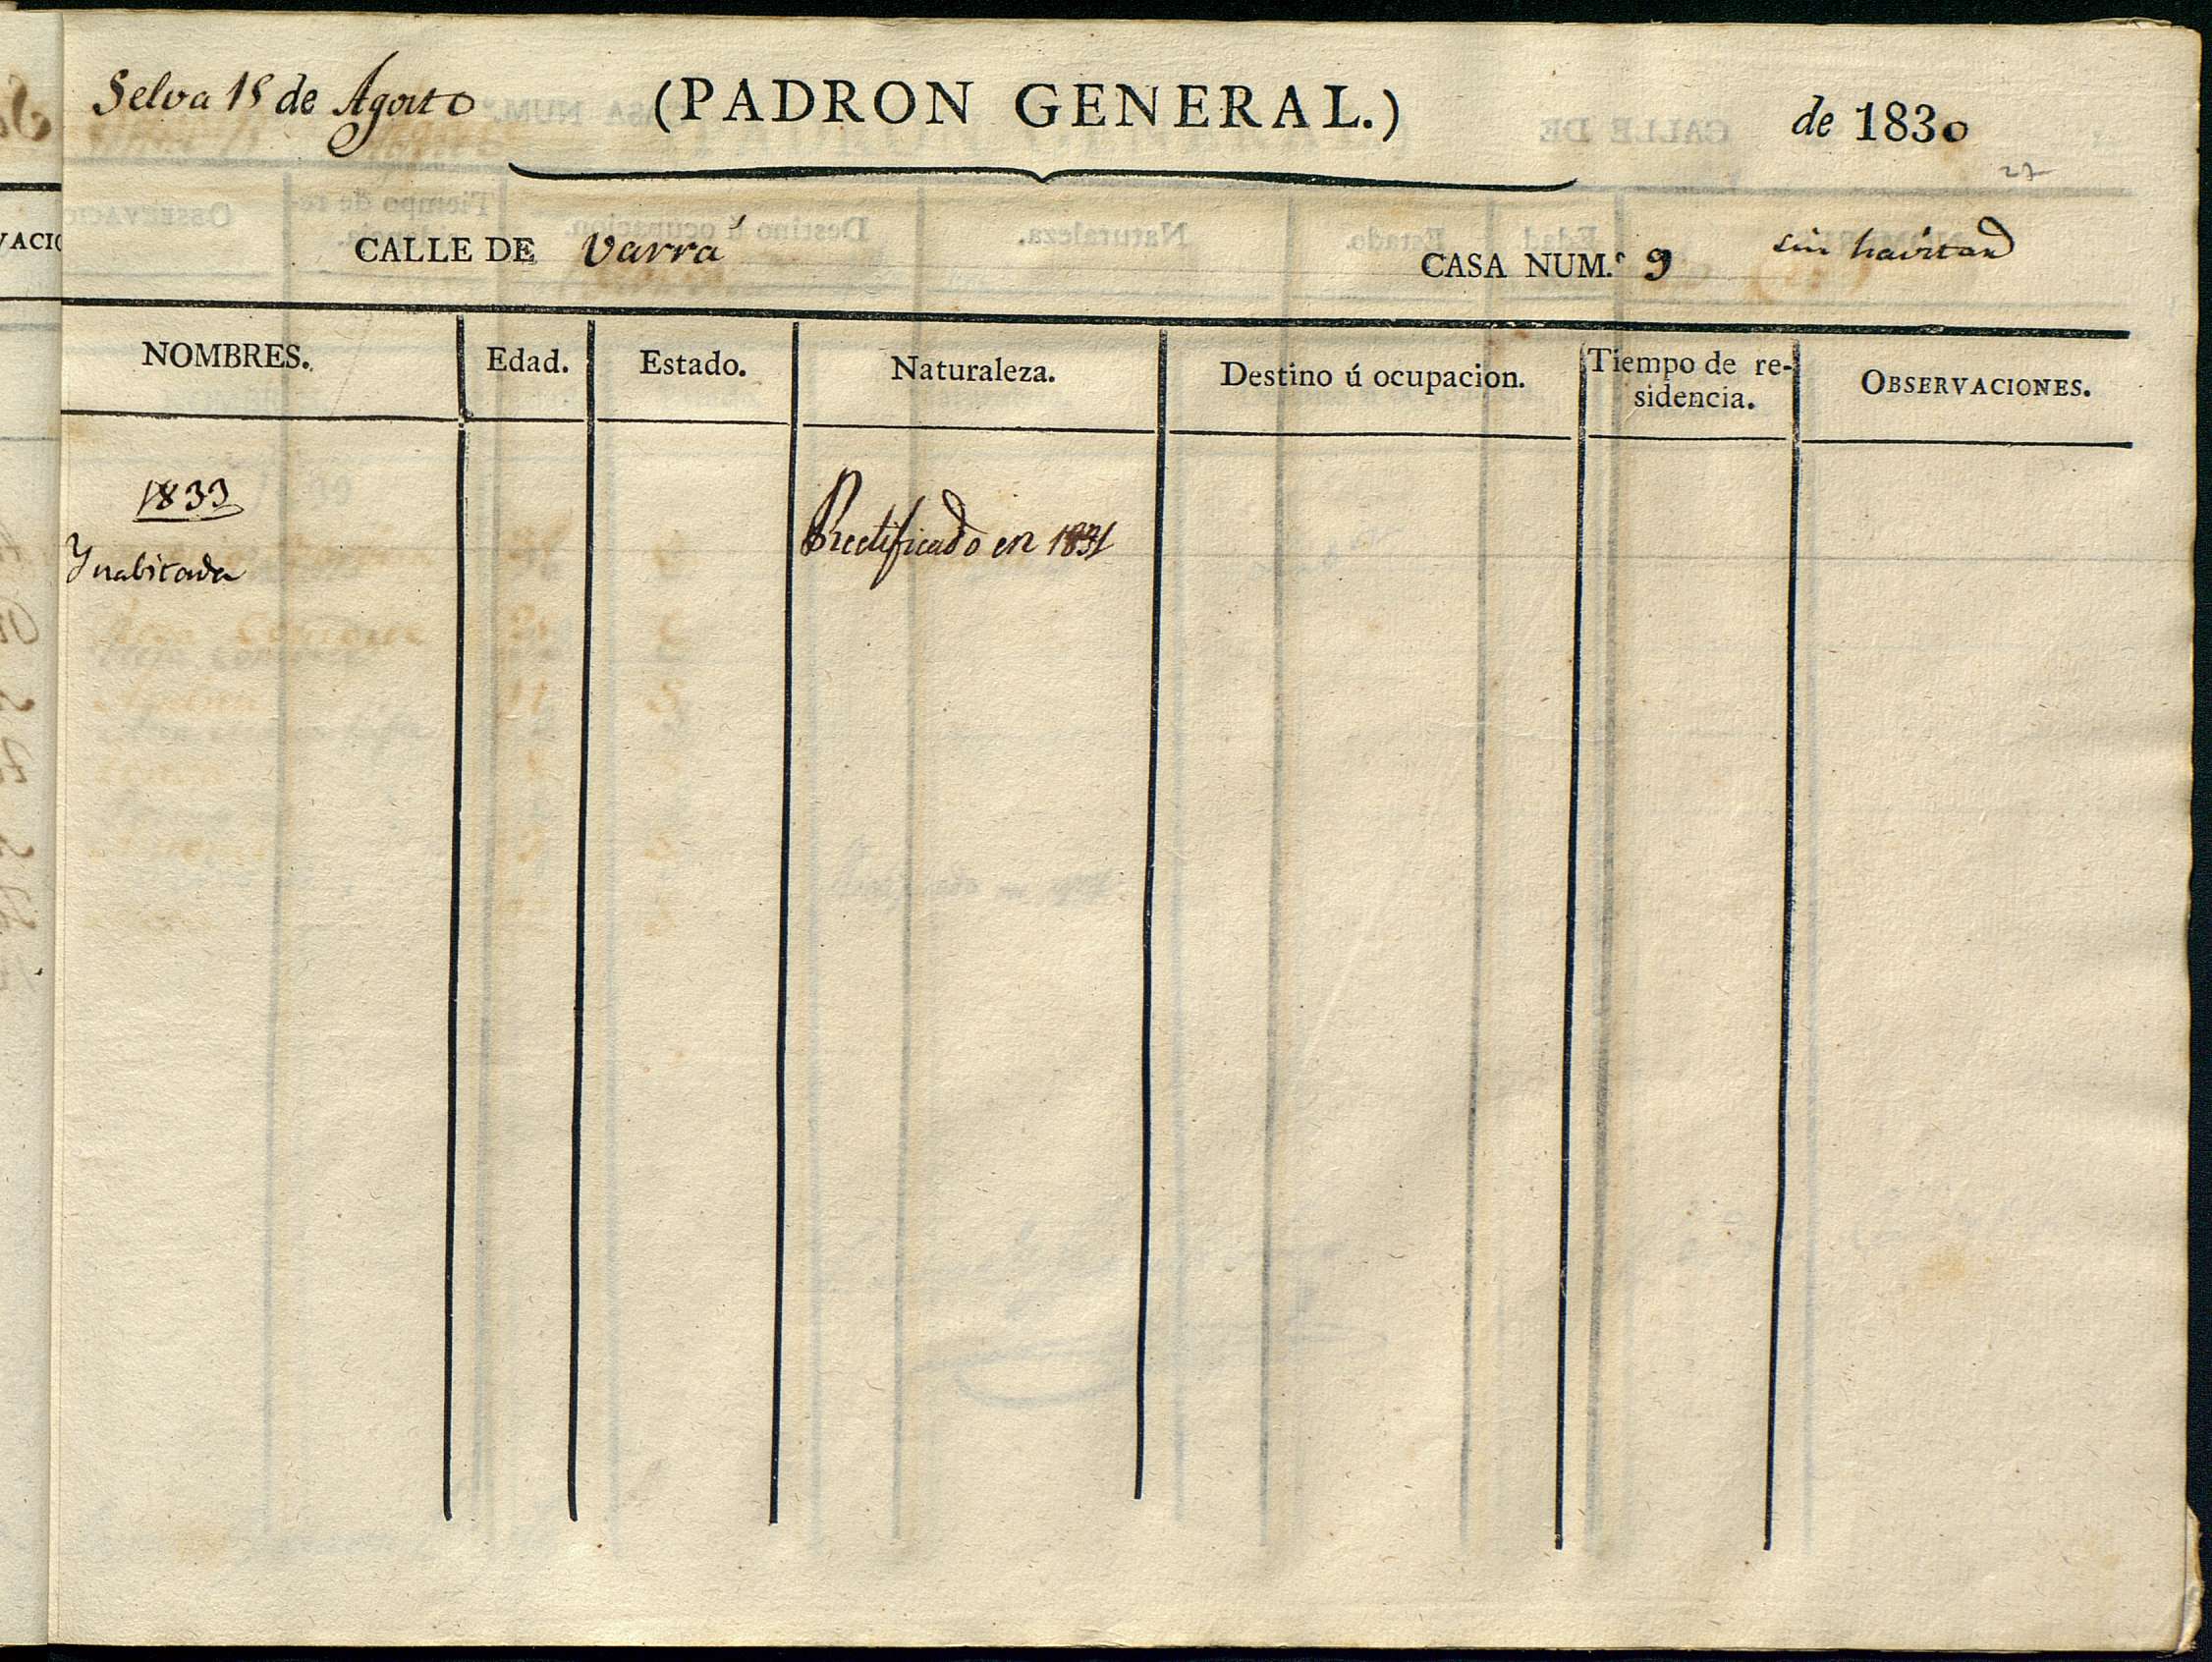 Selva 15 de Agosto (PADRON GENERAL.) de 1830
27
CALLE DE Varrá CASA NUM.º 9 sin havitad
NOMBRES. Edad. Estado. Naturaleza. Destino ú ocupacion. Tiempo de re- OBSERVACIONES.
sidencia.
1833
Ynabitada
Rectificado en 1831